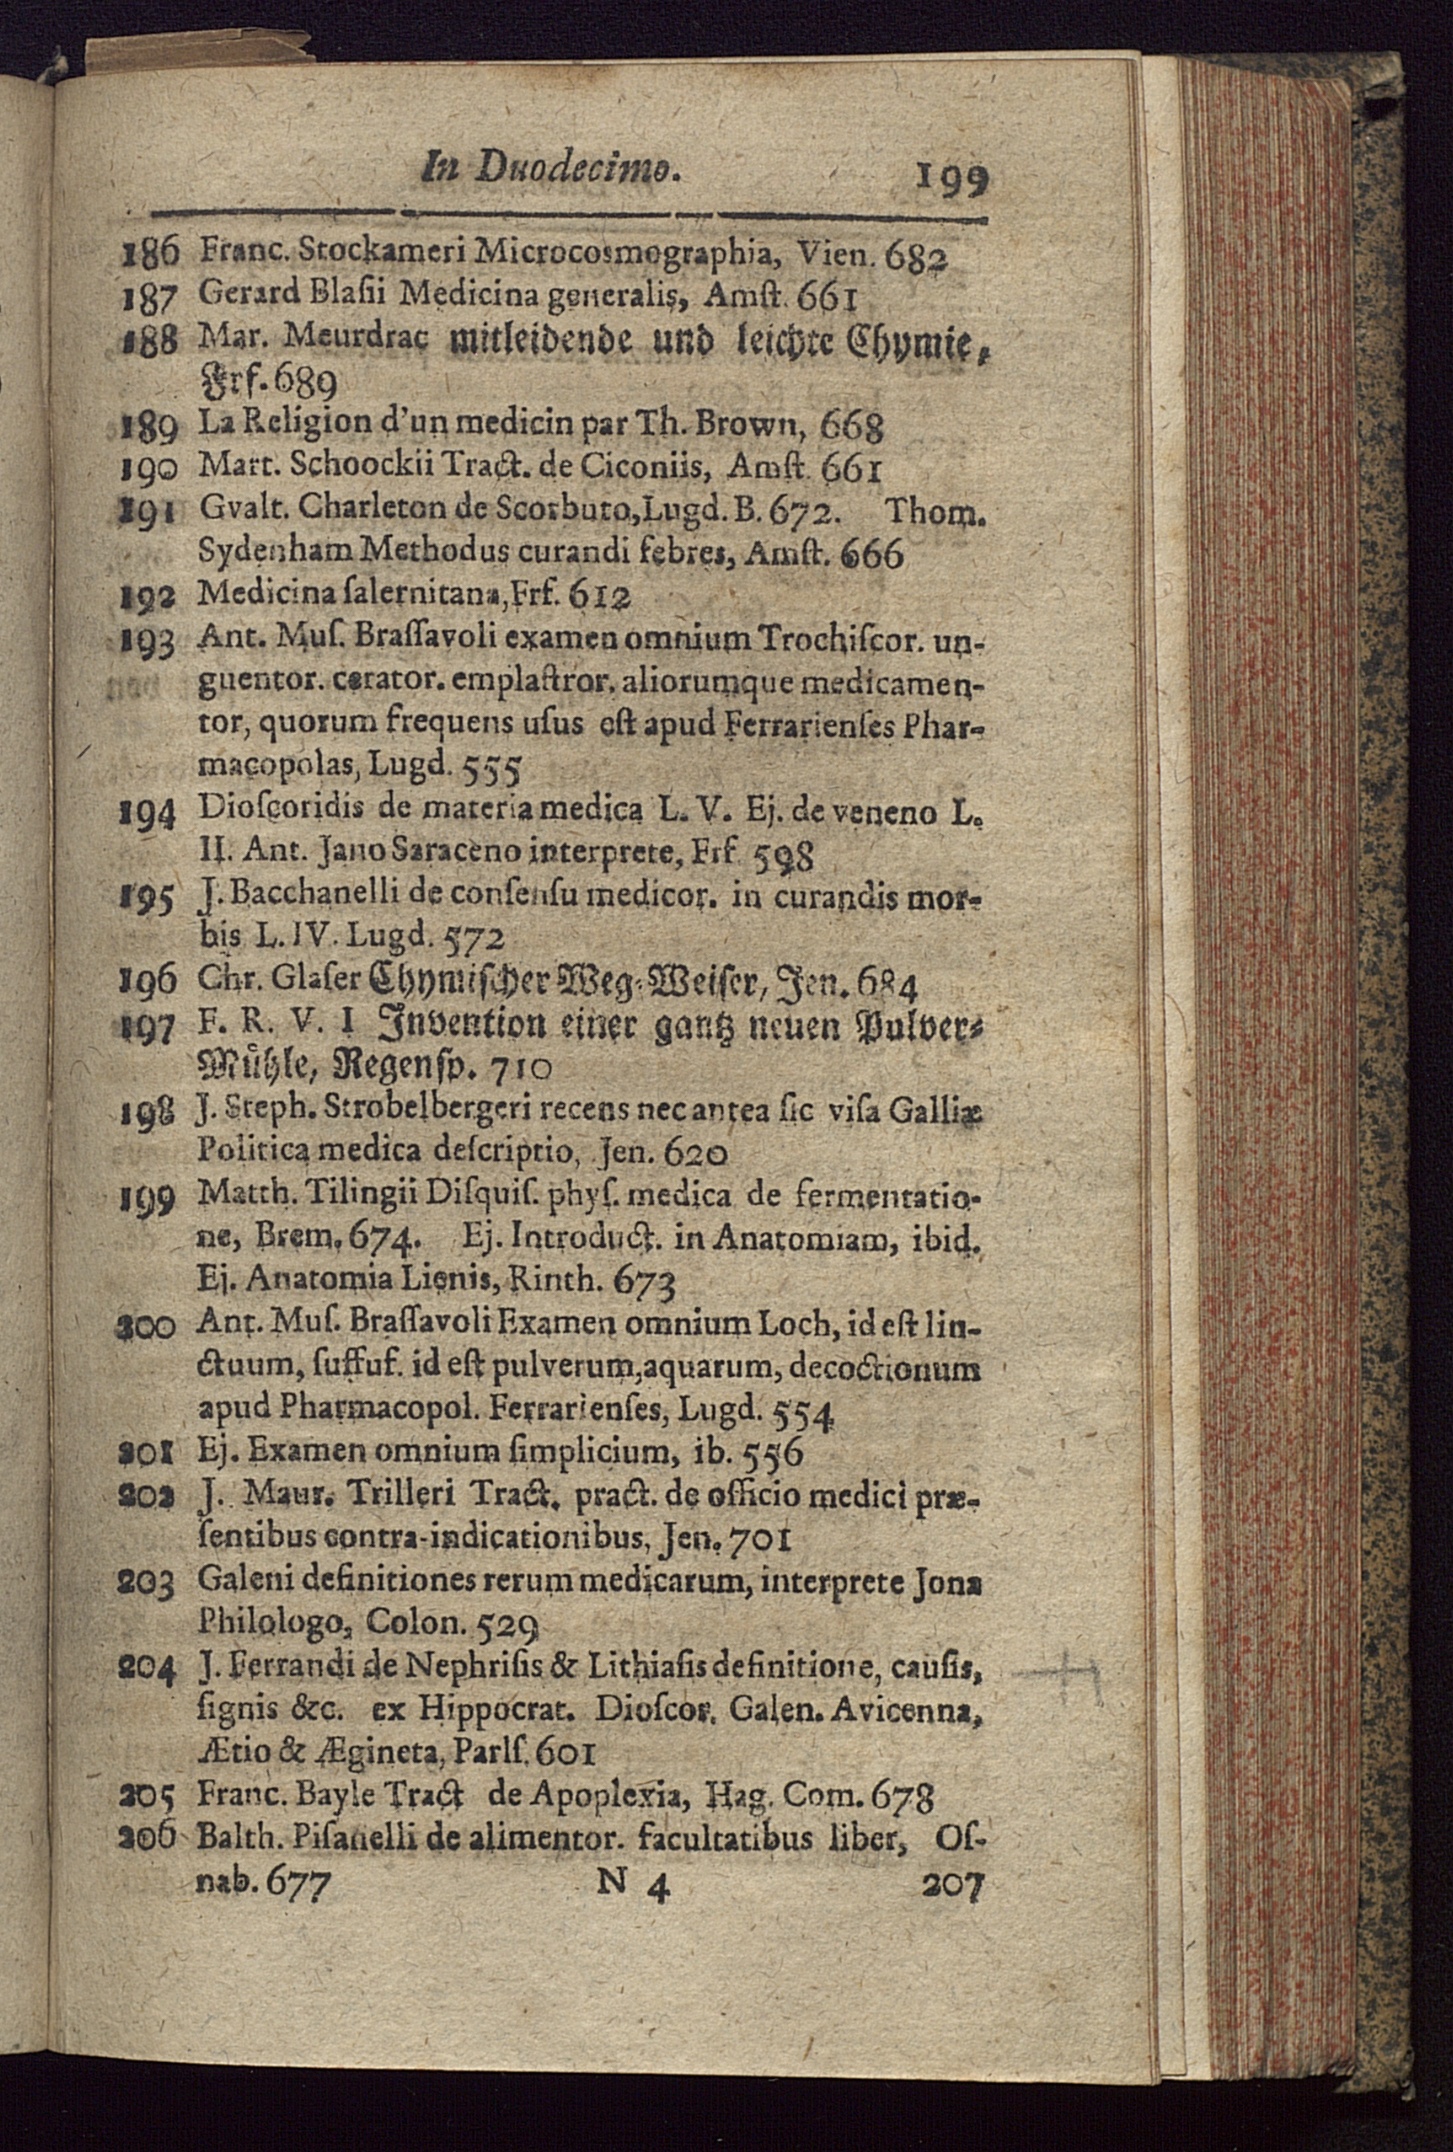 In Duodecimo. 199
186 Franc. Stockameri Microcosmographia, Vien. 682
187 Gerard Blaſii Medicina generalis, Amſt. 661
188 Mar. Meurdrac mitleidende und leichte Chymie,
Frf. 689
189 La Religion d'un medicin par Th. Brown, 668
190 Mart. Schoockii Tract. de Ciconiis, Amſt. 661
191 Gvalt. Charleton de Scorbuto, Lugd. B. 672. Thom.
Sydenham Methodus curandi febres, Amſt. 666
192 Medicina ſalernitana, Frf. 612
193 Ant. Muſ. Braſſavoli examen omnium Trochiſcor. un-
guentor. cerator. emplaſtror. aliorumque medicamen-
tor, quorum frequens uſus eſt apud Ferrarienſes Phar-
macopolas, Lugd. 555
194 Dioſcoridis de materia medica L. V. Ej. de veneno L.
II. Ant. Jano Saraceno interprete, Frf. 598
195 J. Bacchanelli de conſenſu medicor. in curandis mor-
bis L. IV. Lugd. 572
196 Chr. Glaſer Chymiſcher Weg-Weiſer, Jen. 684
197 F. R. V. I Invention einer gantz neuen Pulver-
Mühle, Regenſp. 710
198 J. Steph. Strobelbergeri recens nec antea ſic viſa Galliæ
Politica medica deſcriptio, Jen. 620
199 Matth. Tilingii Diſquiſ. phyſ. medica de fermentatio-
ne, Brem. 674. Ej. Introduct. in Anatomiam, ibid.
Ej. Anatomia Lienis, Rinth. 673
200 Ant. Muſ. Braſſavoli Examen omnium Loch, id eſt lin-
ctuum, ſuffuf. id eſt pulverum, aquarum, decoctionum
apud Pharmacopol. Ferrarienſes, Lugd. 554
201 Ej. Examen omnium ſimplicium, ib. 556
202 J. Maur. Trilleri Tract. pract. de officio medici præ-
ſentibus contra-indicationibus, Jen. 701
203 Galeni definitiones rerum medicarum, interprete Jona
Philologo, Colon. 529
204 J. Ferrandi de Nephriſis & Lithiaſis definitione, cauſis,
ſignis &c. ex Hippocrat. Dioſcor. Galen. Avicenna,
Ætio & Ægineta, Parlſ. 601
205 Franc. Bayle Tract de Apoplexia, Hag. Com. 678
206 Balth. Piſanelli de alimentor. facultatibus liber, Oſ-
nab. 677 N 4 207